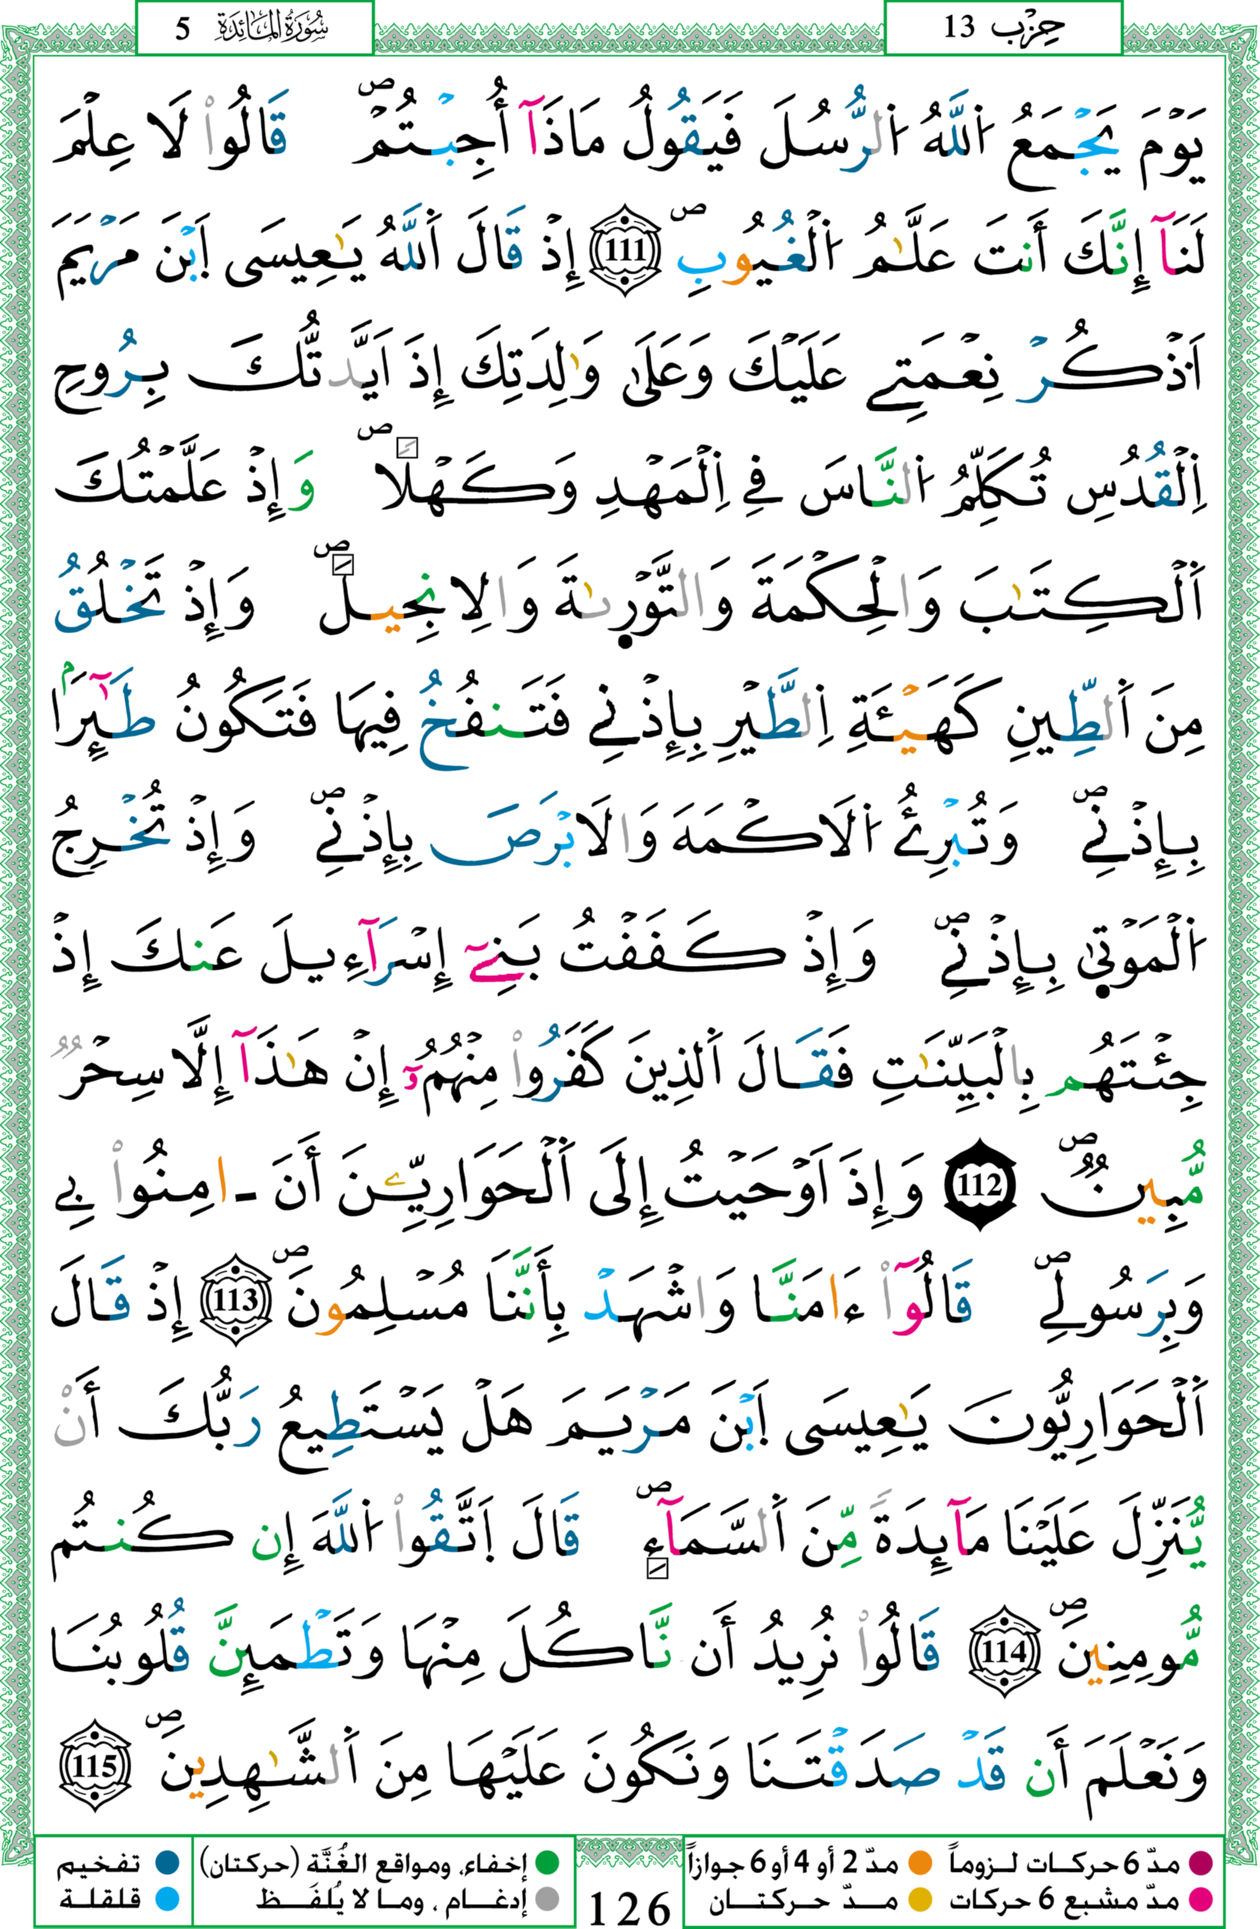 حِزْب 13
سُورَةُ المَائِدَة 5
يَوْمَ يَجْمَعُ اُ۬للَّهُ اُ۬لرُّسُلَ فَيَقُولُ مَاذَآ أُجِبْتُمْۖ قَالُواْ لَا عِلْمَ
لَنَآ إِنَّكَ أَنتَ عَلَّٰمُ اُ۬لْغُيُوبِۖ 111 إِذْ قَالَ اَ۬للَّهُ يَٰعِيسَى اَ۪بْنَ مَرْيَمَ
اَ۟ذْكُرْ نِعْمَتِے عَلَيْكَ وَعَلَىٰ وَٰلِدَتِكَ إِذَ اَيَّدتُّكَ بِرُوحِ
اِ۬لْقُدُسِ تُكَلِّمُ اُ۬لنَّاسَ فِے اِ۬لْمَهْدِ وَكَهْلاٗۖ وَإِذْ عَلَّمْتُكَ
اَ۬لْكِتَٰبَ وَالْحِكْمَةَ وَالتَّوْر۪ىٰةَ وَالِانجِيلَۖ وَإِذْ تَخْلُقُ
مِنَ اَ۬لطِّينِ كَهَيْـَٔةِ اِ۬لطَّيْرِ بِإِذْنِے فَتَنفُخُ فِيهَا فَتَكُونُ طَٰٓئِراَۢ
بِإِذْنِےۖ وَتُبْرِئُ اُ۬لَاكْمَهَ وَالَابْرَصَ بِإِذْنِےۖ وَإِذْ تُخْرِجُ
اُ۬لْمَوْت۪ىٰ بِإِذْنِےۖ وَإِذْ كَفَفْتُ بَنِےٓ إِسْرَآءِيلَ عَنكَ إِذْ
جِئْتَهُم بِالْبَيِّنَٰتِ فَقَالَ اَ۬لذِينَ كَفَرُواْ مِنْهُمُۥٓ إِنْ هَٰذَآ إِلَّا سِحْرٞ
مُّبِينٞۖ 112 وَإِذَ اَوْحَيْتُ إِلَى اَ۬لْحَوَارِيِّـۧنَ أَنَ ـ امِنُواْ بِے
وَبِرَسُولِےۖ قَالُوٓاْ ءَامَنَّا وَاشْهَدْ بِأَنَّنَا مُسْلِمُونَۖ 113 إِذْ قَالَ
اَ۬لْحَوَارِيُّونَ يَٰعِيسَى اَ۪بْنَ مَرْيَمَ هَلْ يَسْتَطِيعُ رَبُّكَ أَنْ
يُّنَزِّلَ عَلَيْنَا مَآئِدَةٗ مِّنَ اَ۬لسَّمَآءِۖ قَالَ اَ۪تَّقُواْ اُ۬للَّهَ إِن كُنتُم
مُّومِنِينَۖ 114 قَالُواْ نُرِيدُ أَن نَّاكُلَ مِنْهَا وَتَطْمَئِنَّ قُلُوبُنَا
وَنَعْلَمَ أَن قَدْ صَدَقْتَنَا وَنَكُونَ عَلَيْهَا مِنَ اَ۬لشَّٰهِدِينَۖ 115
مدّ 6 حركات لـزوماً مدّ 2 أو 4 أو 6 جوازاً إخفاء، ومواقع الغُنَّة (حركتان) تفخيم
مدّ مشبع 6 حركات مــدّ حركتــان إدغــام ، ومـا لا يُلفَــظ قلقلة
126